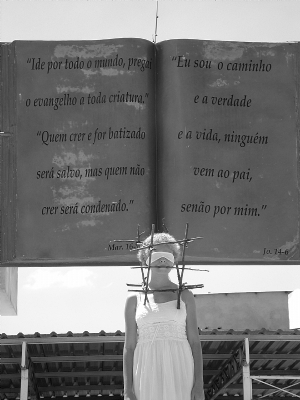 "Ide por todo o mundo, pregai
o evangelho a toda criatura."
"Quem crer e for batizado
será salvo, mas quem não
crer será condenado."
Mar. 16
"Eu sou o caminho
e a verdade
e a vida, ninguém
vem ao pai,
senão por mim."
Jo. 14-6